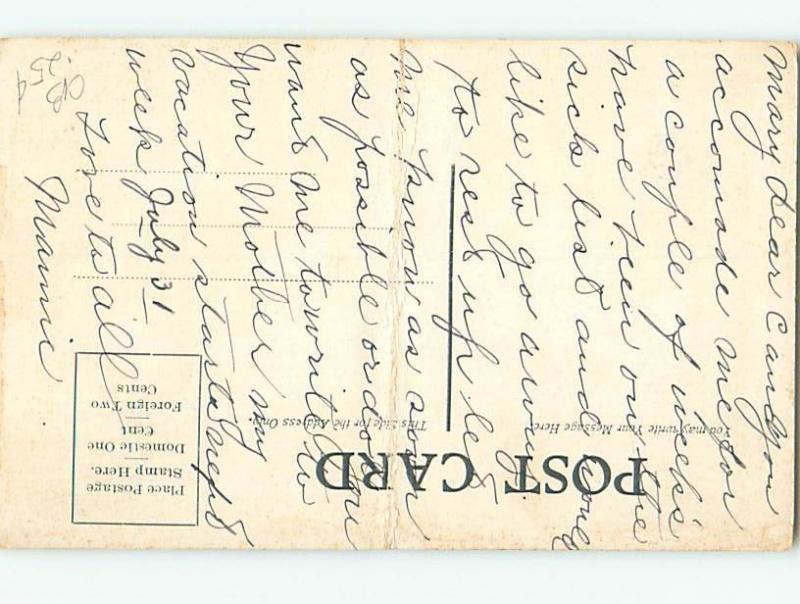 Mary dear Can you
accomode me for
a couple of weeks
have been on the
sick list and would
like to go away
to rest up let
me know as soon
as possible or do you
want me to write to
Your Mother my
vacation starts next
week July 31
Love to all
Mamie
POST CARD
You may write Your Message Here.
This Side for the Address Only.
Place Postage
Stamp Here.
Domestic One
Cent
Foreign Two
Cents